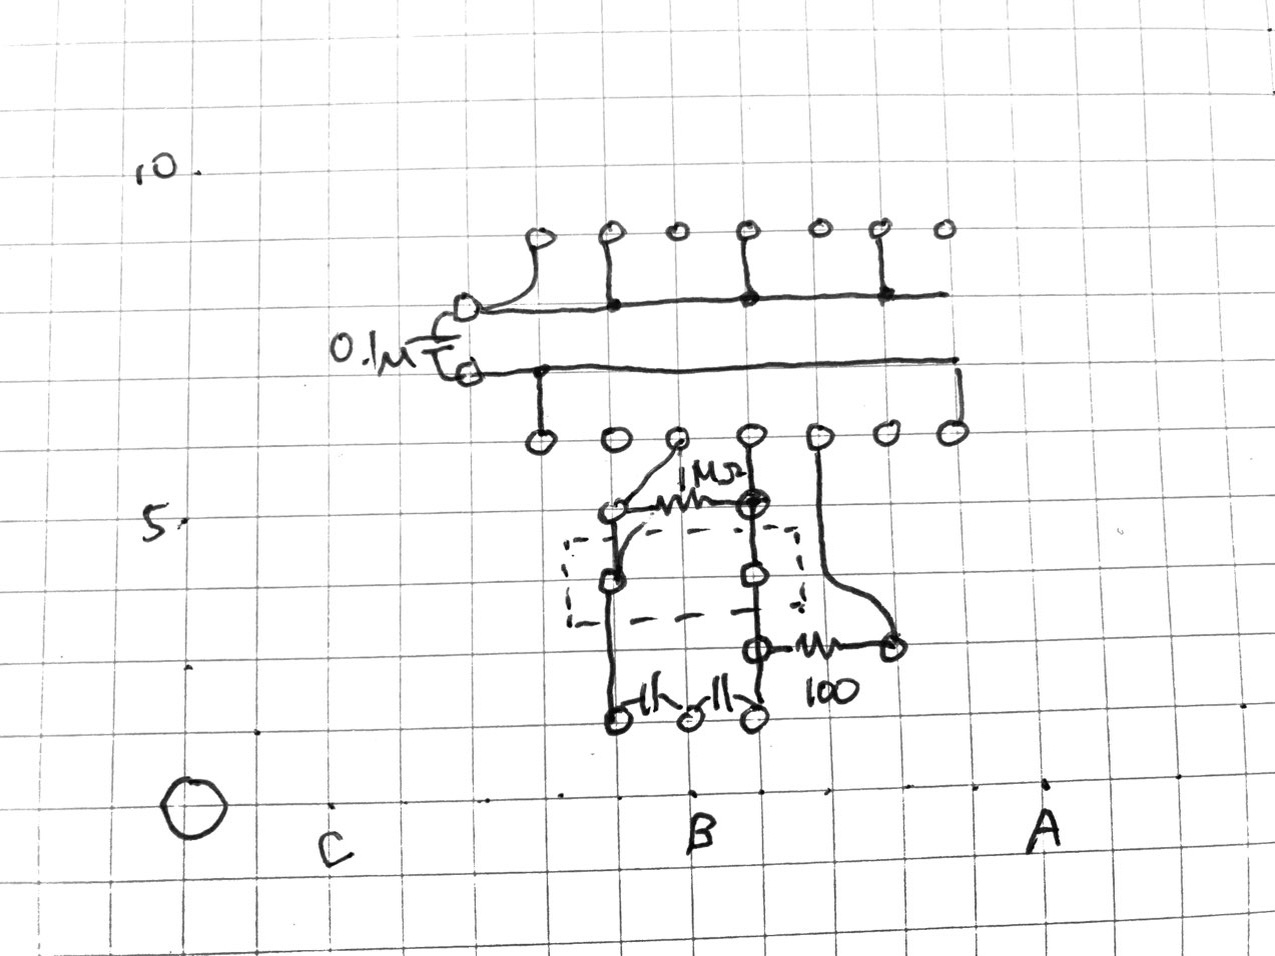 10
0.1μ
1MΩ
5
100
C B A